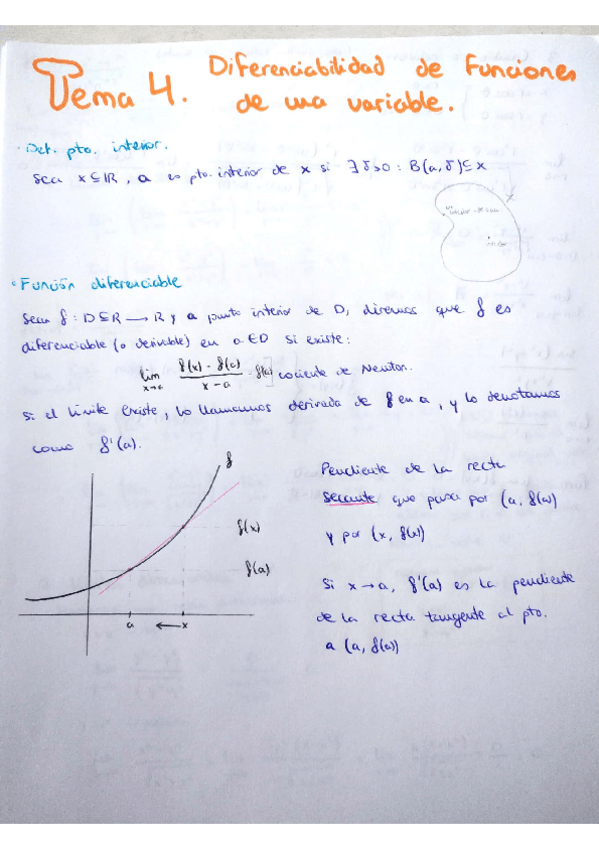 Tema 4. Diferenciabilidad de Funciones
de una variable.
· Def. pto. interior.
Sea x ⊆ ℝ, a es pto. interior de x si ∃ δ>0 : B(a,δ) ⊆ x
x
interior
• Función diferenciable
Sea f : D ⊆ ℝ → ℝ y a punto interior de D, diremos que f es
diferenciable (o derivable) en a ∈ D si existe:
lim x→a f(x) - f(a) / x - a cociente de Newton.
si el límite existe, lo llamamos derivada de f en a, y lo denotamos
como f'(a).
f
f(x)
f(a)
a ← x
Pendiente de la recta
secante que pasa por (a, f(a))
y por (x, f(x))
Si x → a, f'(a) es la pendiente
de la recta tangente al pto.
a (a, f(a))